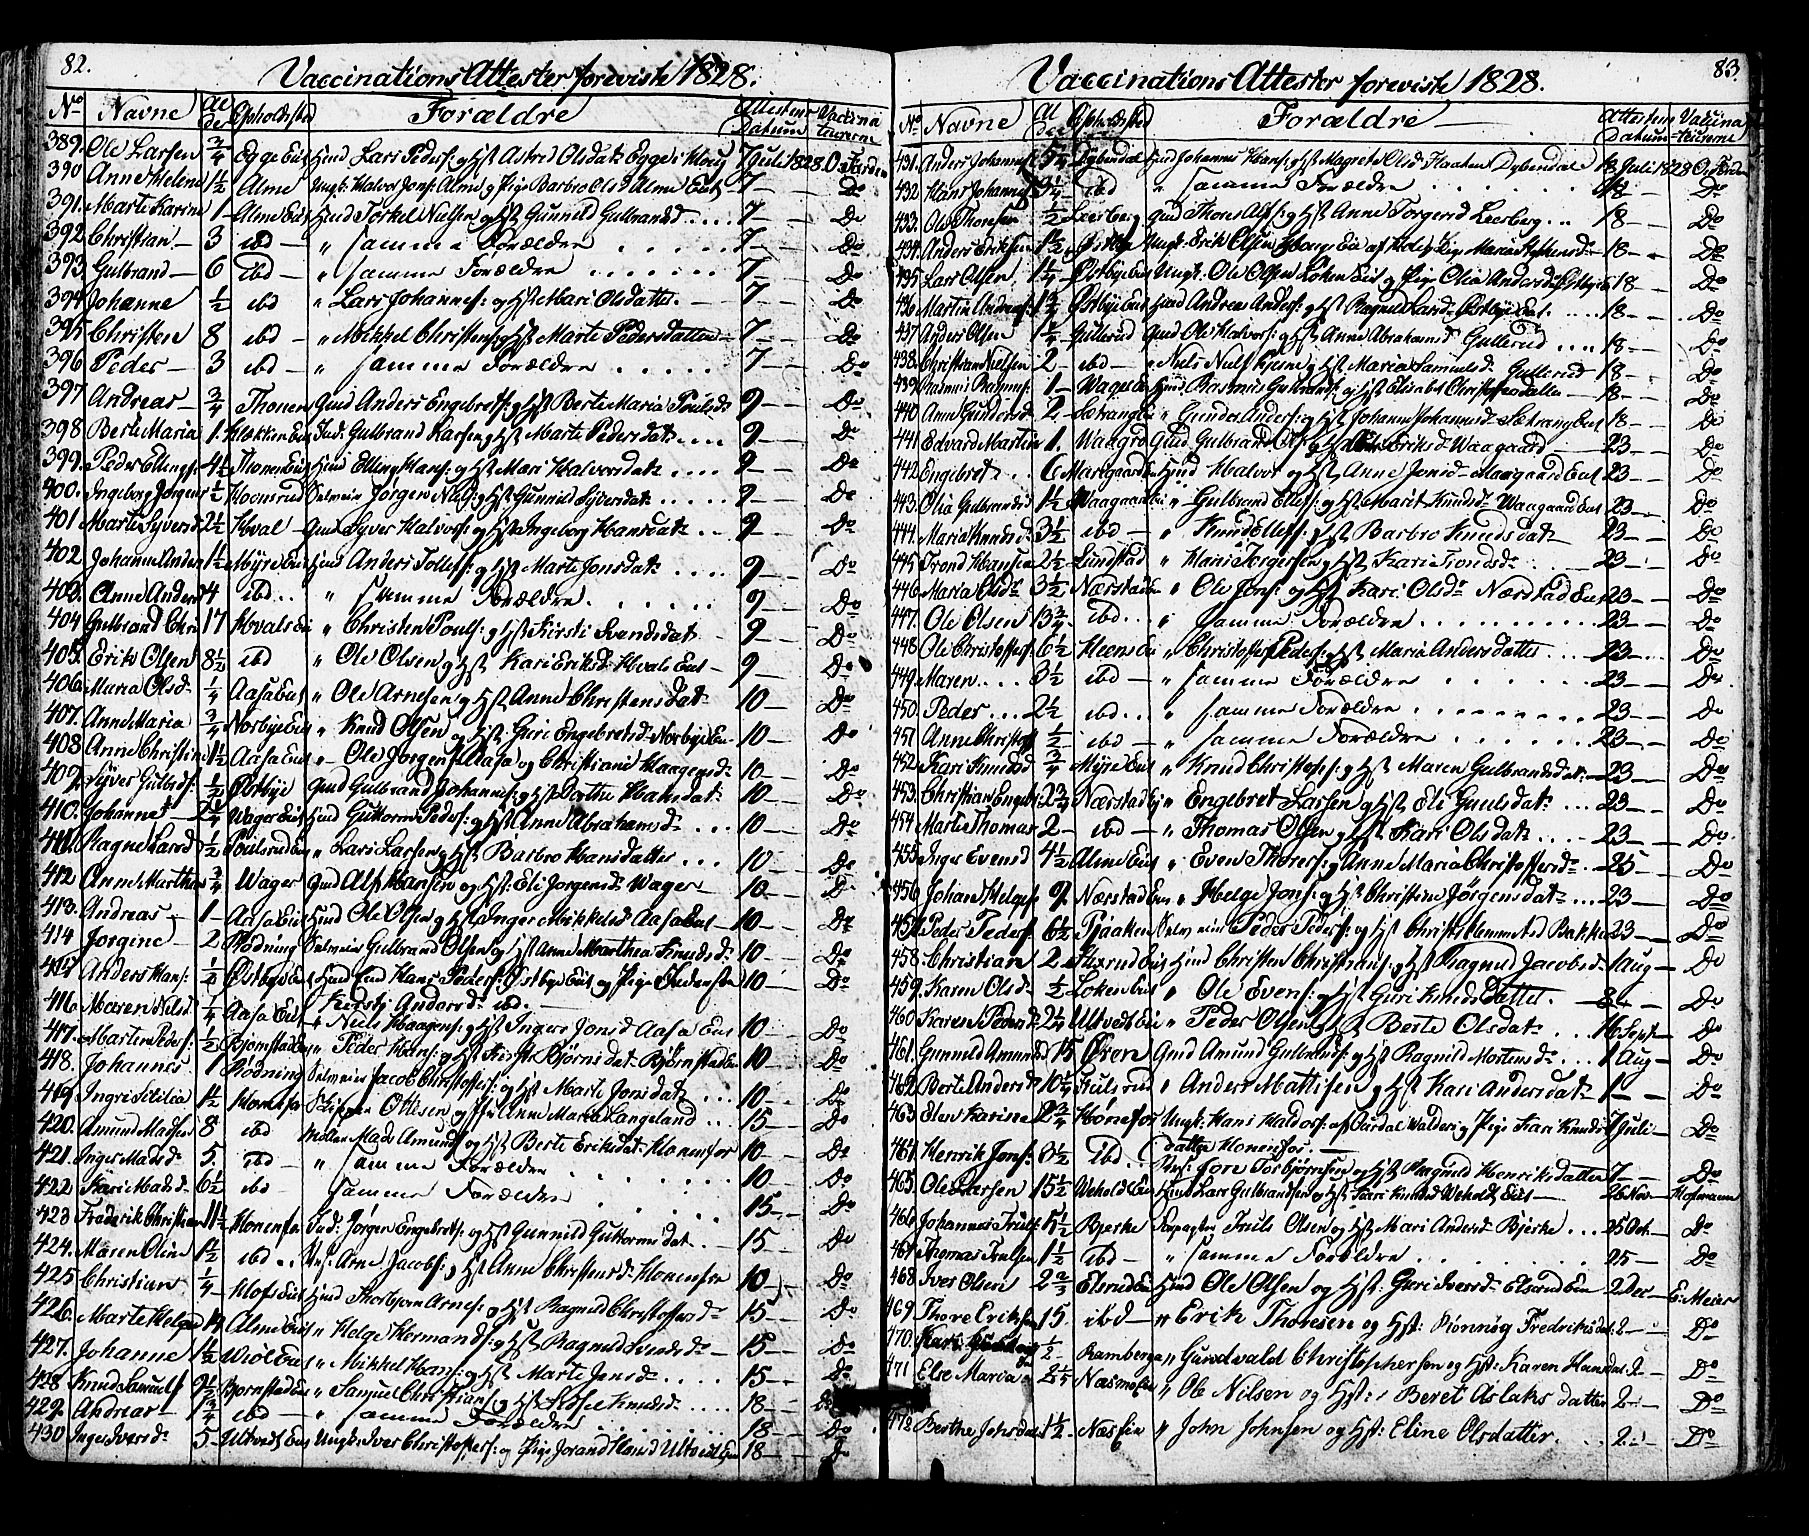 82.
Vaccinations Attester foreviste 1828.
No Navne Alder Opholdsted Forældre Attestens Datum Vaccinateurerne
389. Ole Larsen 3/4 Egge Eiet Huusmd Lars Peders: og Hst Astrid Olsdat: Egge 7 Juli 1828.
390 Anne Helene 1 1/2 Alme Ungk: Halvor Jons: Alme og Pige Barbro Olsd Alme Eiet 7 — Do
391. Marte Karine 1 — Alme Eiet Huusmd Torkel Nielsen og Hst Gunnild Gulbransd 7 — Do
392 Christian — 3 ibd — " samme Forældre 7 — Do
393. Gulbrand — 6 ibd — " samme Forældre 7 — Do
394 Johanne 1/2 ibd " Lars Johannes: og Hst Mari Olsdatter 7 — Do
395 Christen 8 ibd — " Mikkel Christens: og Hst Marte Pedersdatter 7 — Do
396 Peder — 3 ibd — " samme Forældre 7 — Do
397 Andreas 3/4 Thonen Gmd Anders Engebrets: og Hst Berte Maria Poulsd: 9 — Do
398 Berte Maria 1. Klækken Eiet Ind: Gulbrand Larsen og Hst Marte Pedersdat: 9 — Do
399. Peder Ellings: 4 1/2 Thonen Eiet Hmd Elling Hans: og Hst Mari Halvorsdat: 9 — Do
400. Ingeborg Jørgens 1/2 Hoonsrud Selveier Jørgen Niels: og Hst Gunnild Syversdat: 9 — Do
401 Marte Syversd 2 1/2 Hval Gmd Syver Halvors: og Hst Ingeborg Hansdat: 9 — Do
402. Johanne Anders 1 1/2 Myre Eiet Hmd Anders Tollefs: og Hst Marte Jonsdat: 9 — Do
403. Anne Andersd 4 ibd.. " samme Forældre 9 — Do
404 Gulbrand Chri 17 Hvals Eiet " Christen Pouls: og Hst Kirsti Svendsdat: 9 — Do
405. Erik Olsen 8 1/2 ibd " Ole Olsen og Hst Kari Eriksd: Hvals Eiet 9 — Do
406. Maria Olsd: 1/4 Aasa Eiet " Ole Arnesen og Hst Anne Christensdat: 10 — Do
407. Anne Maria 3/4 Norbye Eiet " Knud Olsen og Hst Guri Engebretsd: Norbye Eiet 10 — Do
408. Anne Christine 1 1/2 Aasa Eiet " Ole Jørgens: Aasa og Christiane Haagensd: 10 — Do
409. Syver Gulbrds: 1/2 Østbye Gmd Gulbrand Johannes: og Hst Dorthe Hansdat: 10 — Do
410. Johanne 2 1/4 Wager Eiet Hmd Guttorm Peders: og Hst Anne Abrahamsd: 10 — Do
411. Ragne Larsd 1/2 Poulsrud Eiet " Lars Larsen og Hst Barbro Hansdatter 10 — Do
412 Anne Marthea 3/4 Wager Gmd Alf Hansen og Hst: Eli Jorgensd: Wager 10 — Do
413. Andreas 1 — Aasa Eiet Hmd Ole Olsen og Hst Inger Mikkelsd: Aasa Eiet 10 — Do
414 Jorgine 2 Rodning Selveier Gulbrand Olsen og Hst Anne Marthea Knudsd: 10 — Do
415 Anders Hans: 1/2 Østbye Eiet Hans Peders: Østbye Eiet og Pige 10 — Do
Kirsti Andersd: ibd.
416 Maren Nilsd 1/4 Aasa Eiet " Niels Haagens: og Hst Inger Jonsd Aasa Eiet 10 — Do
417. Marten Peders: 1/2 Bjørnstad Eiet " Peder Hans: og Hst Bjørnsdat: Bjørnstad Eiet 10 — Do
418. Johannes 1 Rodning Selveier Jacob Christoffers: og Hst Marte Jonsdat: 10 — Do
419 Ingri Sicilia 1 1/2 Honefos Skipper Ottesen og Anne Maria Langeland 15 — Do
420. Amund Madsen 8 ibd Møller Mads Amunds: og Hst Berte Eriksdat: Honenfos 10 — Do
421. Inger Madsd: 5. ibd — " samme Forældre 10 — Do
422 Kari Madsd: 6 1/2 ibd — samme Forældre 15 — Do
423 Frederik Christian 1 1/2 Honenfos Ind: Jørgen Engebrets: og Hst Gunnild Guttormsdat: 15 — Do
424. Maren Oline 1/2 ibd .. Arne Jacobs: og Hst Anne Christensd: Honenfos 10 — Do
425 Christian 1/4 Hofs Eiet Hmd Thorbjørn Arnes: og Hst Ragnild Christoffersd: 15 — Do
426. Marte Helged Alme Eiet " Helge Hermands: og Hst Ragnild 15 — Do
427. Johanne 1 1/2 Wiol Eiet " Mikkel Hans: og Hst Marte Jonsd: 15 — Do
428 Knud Samuels 9 1/2 Bjornstad Eiet " Samuel Christians: og Hst Knudsd: 18 — Do
429. Andreas 3/4 ibd — " samme Forældre 18 — Do
430 Inger Iversd: 5 — Ultvedt Eiet Ungk: Iver Christoffers: og Pige Jorand Ultvedt Eiet 18 — Do
83.
Vaccinations Attester foreviste 1828.
No Navne Alder Opholdsted Forældre Attestens Datum Vaccinateurerne
431. Anders Johannes: 5 Dybendal Gmd Johannes Hans: og Hst Magrete Olsd: Haaken Dybendal 18 Juli 1828
432. Hans Johannes: ibd " samme Forældre 18 — Do
433. Ole Thoresen 1/2 Leerberg Gmd Thore Alfs: og Hst Anne Torgersd Leerberg 18 — Do
434. Anders Eriksen 1 1/2 Østbye Ungk: Erik Olsen Houg Eie af Hole og Pige Maria 18 — Do
435 Lars Olsen 1 1/4 Østbye Eiet Ungk: Ole Olsen Løken Eiet og Pige Olia Andersd: Østbye 18 — Do
436 Martin Andreas: Østbye Eiet Hmd Andreas Anders: og Hst Ragnild Østbye Eiet 18 — Do
437 Anders Olsen 1 1/4 Gullerud Gmd Ole Halvors: og Hst Anne Abrahamsd Gullerud 18 — Do
438. Christian Nielsen 2 ibd — " Niels Niels: og Hst Maria Samuelsd: Gullerud 18 — Do
439. Rasmus Rasmus: 1 — Wager Eiet Hmd Rasmus Gulbrands: og Hst Elisabet Christoffersdatter 18 — Do
440. Anne Gundersd 2 Sætrang Eiet " Gunder Anders: og Hst Johanne Johannesd: Sætrang Eiet 18 — Do
441. Edvard Martin 1. Waagrd Gmd Gulbrand og Hst Eriksd: Waagaard 23 — Do
442. Engebret 6 Hmd Halvor og Hst Anne Jonsd: 23 — Do
443. Olia Gulbrandsd 1 1/2 Waagaard Eiet " Gulbrand Ellefs: og Hst Maret Knudsd: Waagaard Eiet 23 — Do
444. Maria Knudsd: 3 1/2 ibd — " Knud Ellefs: og Hst Barbro Knudsdat 23 — Do
445 Trond Hansen 2 1/2 Lundstad " Hans Torgersen og Hst Kari Trondsd: 23 — Do
446. Maria Olsd: 3 1/2 Nærstad Eiet " Ole Jons: og Hst Kari Olsd: Nærstad Eiet 23 — Do
447. Ole Olsen 1 3/4 ibd.. " samme Forældre 23 — Do
448. Ole Christoffers: 6 1/2 Heens Eiet " Christoffer Peders: og Hst Maria Andersdatter 23 — Do
449. Maren 3 1/2 ibd — " samme Forældre 23 — Do
450. Peder 2 1/2 ibd.. " samme Forældre 23 — Do
451 Anne Christof 1/2 ibd — " samme Forældre 23 — Do
452. Kari Knudsd 3/4 Myre Eiet " Knud Christoffs: og Hst Maren Gulbrandsdat: 23 — Do
453. Christian Engebr: 2 3/4 Nærstad Eiet " Engebret Larsen og Hst Eli Guulsdat: 23 — Do
454 Marte Thomas 2 — ibd — " Thomas Olsen og Hst Kari Olsdat: 23 — Do
455. Inger Evensd 4 1/2 Alme Eiet " Even Thores: og Anne Maria Christoffersd: 25 — Do
456 Johan Helges 9 Nærstad Eiet " Helge Jons: og Hst Christine Jørgensdat: 23 — Do
457 Peder Peders: 6 1/2 Tjaaken Selveier Peder Peders: og Hst Bakke 23 — Do
458. Christian 2 Flexrud Eiet Hmd Christen Christians: og Hst Ragnild Jacobsd: 1 Aug — Do
459. Karen Olsd: 1/2 Loken Eiet " Ole Evens: og Hst Guri Knudsdatter. 8 — Do
460 Karen Pedersd: 2 1/4 Ultvedt Eiet " Peder Olsen og Hst Berte Olsdat: 16 Sept — Do
461. Gunnild Amundsd 15 Ören Gmd Amund Gulbrands: og Hst Ragnild Mortensd: 1 Aug — Do
462. Berte Andersd: 10 1/4 " Anders Mattisen og Hst Kari Andersdat: 1 — Do
463. Elen Karine 2 3/4 Hønefos Ungk: Hans Haldors: af Aurdal Walders og Pige Kari Knuds 7 Juli — Do
datter Honenfos.
464. Henrik Jons: 6 1/2 ibd. Jore Torbjørnsen og Hst Ragnild Henriksdatter 7 — Do
465. Ole Larsen 15 1/2 Wehold Eiet Hmd Lars Gulbrandsen og Hst Kari Knudsd Weholdt Eiet 26 Nov — Hofmann
466 Johannes Truls: 5 1/2 Bjerke Forpagter Truls Olsen og Hst Mari Andersd: Bjerke 25 Oct. — Do
467 Thomas Trulsen 1 1/2 ibd — " samme Forældre 25 — Do
468. Iver Olsen 2 2/3 Elsrud Eiet Hmd Ole Olsen og Hst: Guri Iversd: Elsrud Eiet 2 Dec — C: Meier
469 Thore Eriksen 15. ibd — " Erik Thoresen og Hst: Rönnög Fredriksdat: 2 — Do
470. Kari 1/2 Ramberg " Gundvald Christophersen og Hst: Karen Hansdat: 2 — Do
471 Else Maria 2 1/4 Næsmoen " Ole Nilsen og Hst: Beret Aslaksdatter 2 — Do
472 Berthe Johsdat: 1 1/2 Næs Eie " John Johnsen og Hst: Eline Olsdatter. 2 — Do